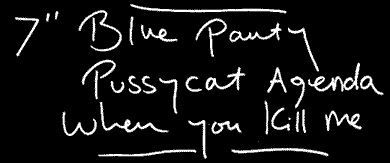 7" Blue Panty
Pussycat Agenda
When you Kill me